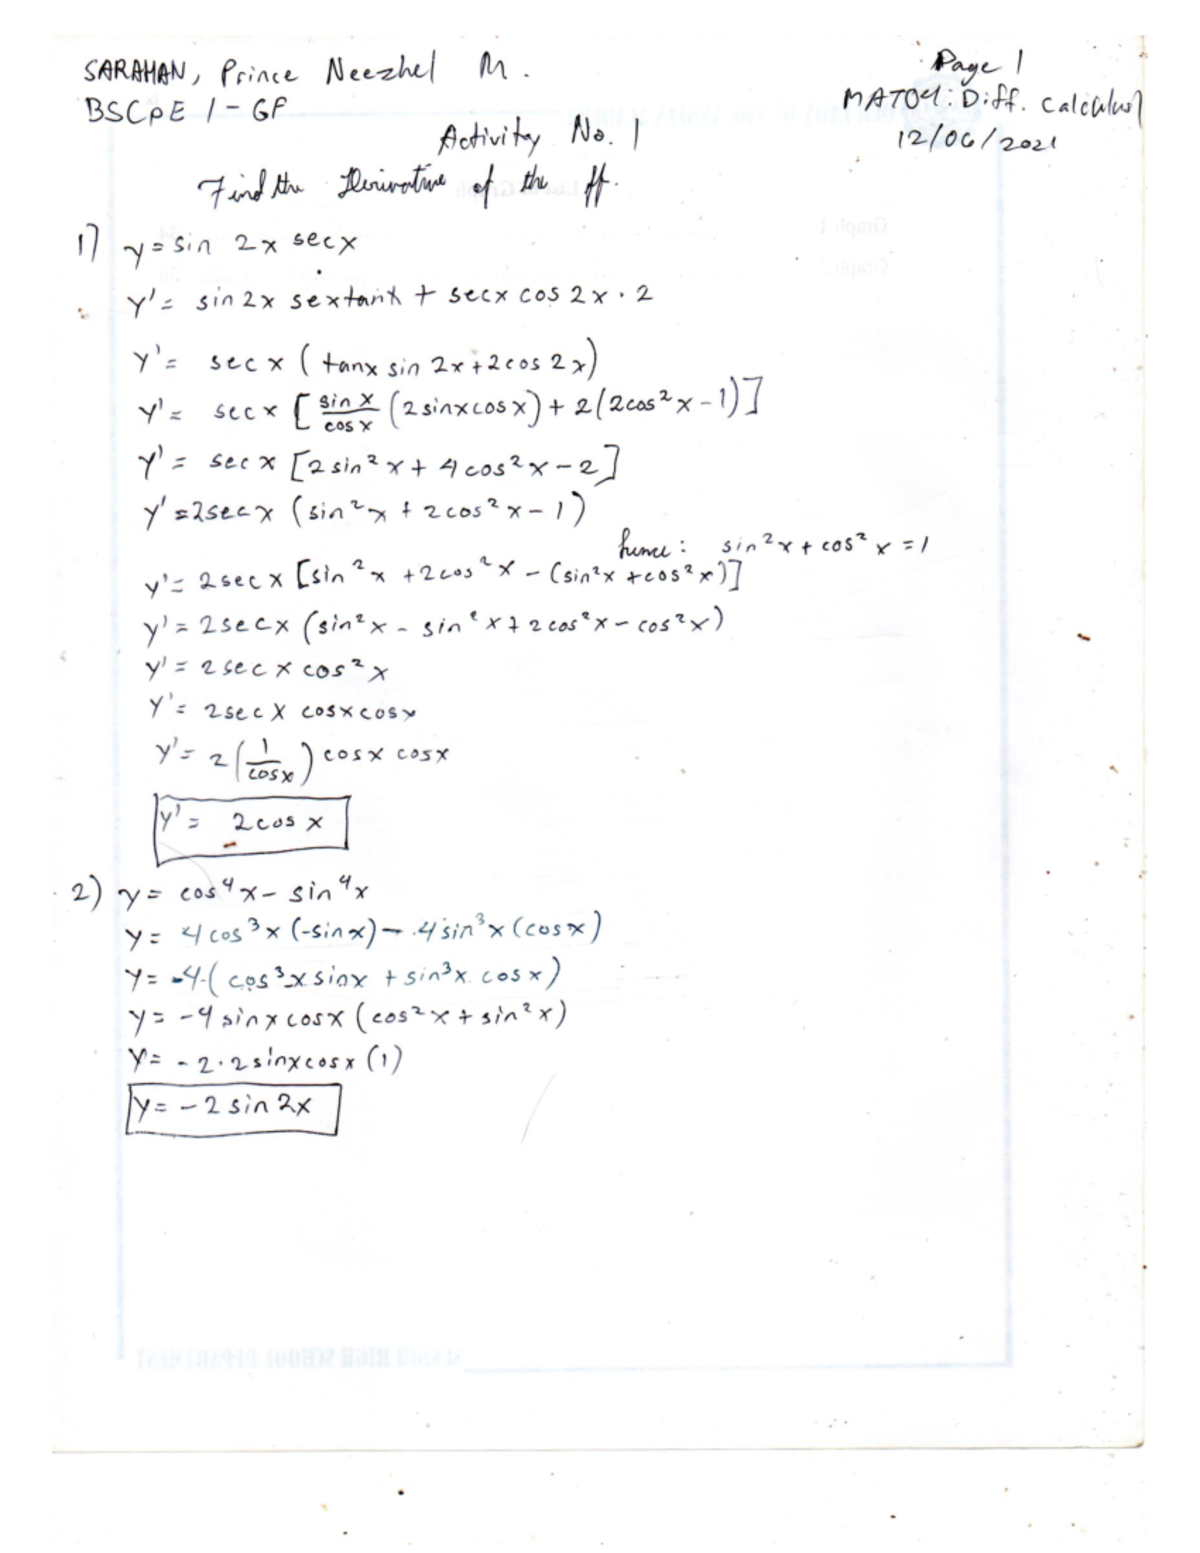 SARAHAN, Prince Neezhel M.
BSCpE 1-GF
Page 1
MAT04: Diff. Calculus
12/06/2021
Activity No. 1
Find the Derivative of the ff.
1) y = sin 2x secx
y' = sin 2x sextanx + secx cos 2x · 2
y' = sec x ( tanx sin 2x + 2cos 2x)
y' = sec x [ sin x / cos x (2 sinx cos x) + 2(2cos²x - 1)]
y' = sec x [2 sin²x + 4 cos²x - 2]
y' = 2secx (sin²x + 2cos²x - 1)
hence: sin²x + cos²x = 1
y' = 2sec x [sin²x + 2cos²x - (sin²x + cos²x)]
y' = 2secx (sin²x - sin²x + 2cos²x - cos²x)
y' = 2sec x cos²x
y' = 2sec x cosx cosx
y' = 2(1/cosx) cosx cosx
y' = 2cos x
2) y = cos⁴x - sin⁴x
y = 4cos³x (-sinx) - 4sin³x (cosx)
y = -4(cos³x sinx + sin³x cosx)
y = -4 sinx cosx (cos²x + sin²x)
y = -2·2sinxcosx (1)
y = -2 sin 2x
SENIOR HIGH SCHOOL DEPARTMENT